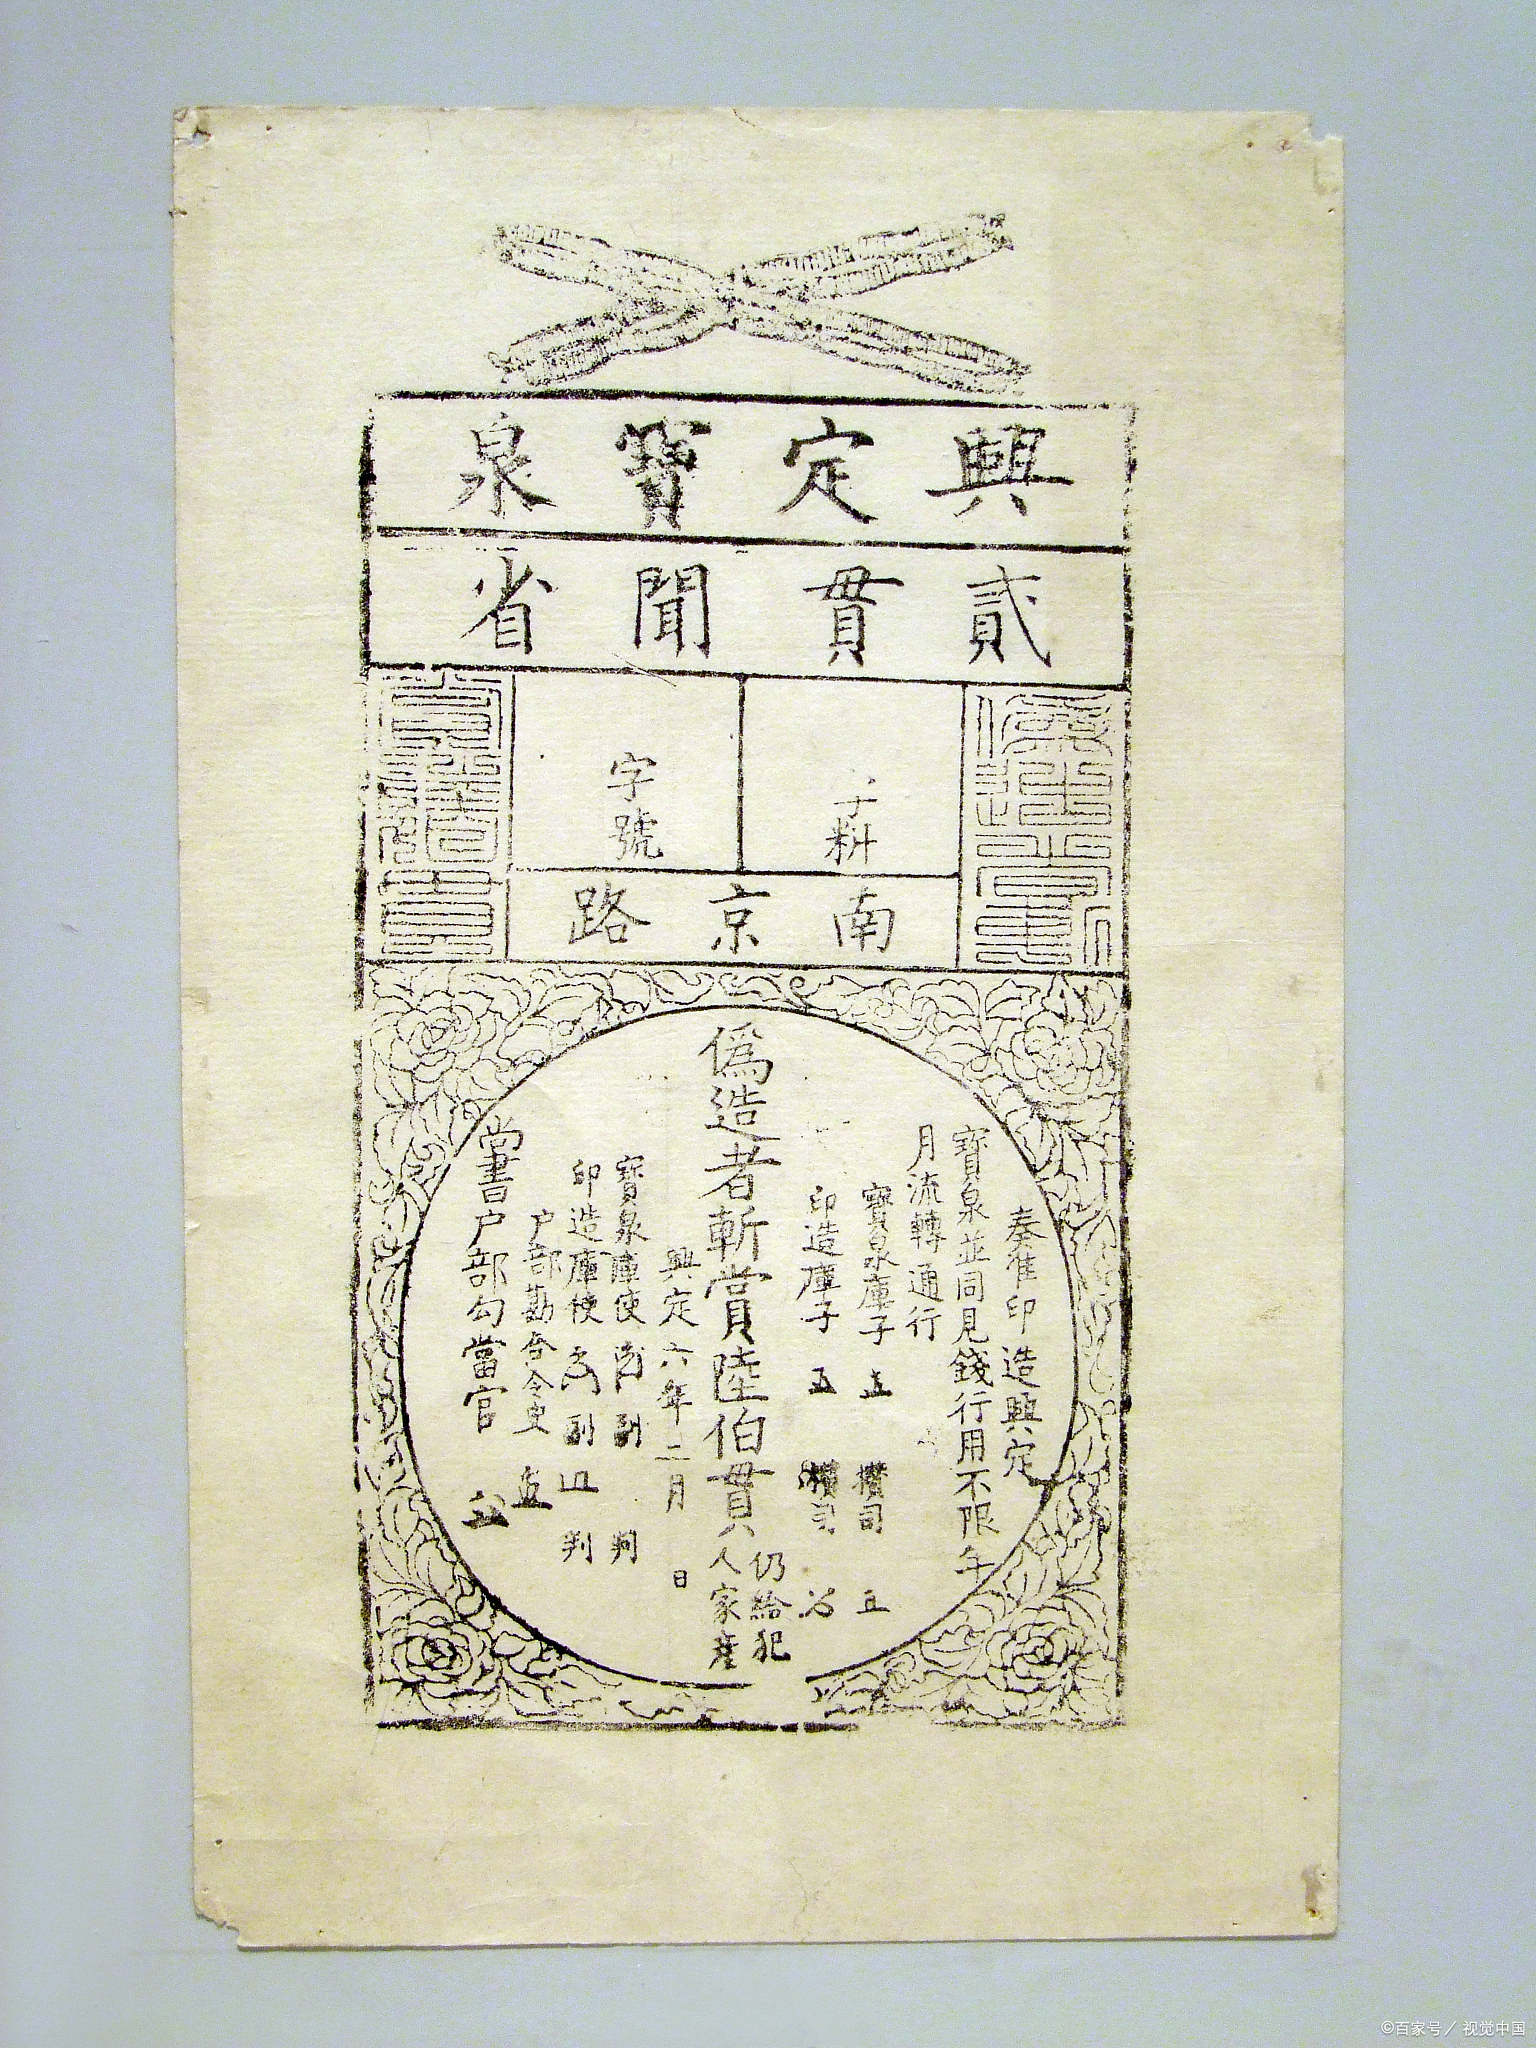 興定寶泉
貳貫聞省
字號
南京路
奏准印造興定
寶泉並同見錢行用不限年
月流轉通行
寶泉庫子
攢司
印造庫子
攢司
偽造者斬賞陸伯貫
仍給犯
人家產
興定六年二月 日
寶泉庫使
判
印造庫使
判
戶部勘合令史
尚書戶部勾當官
©百家号／视觉中国